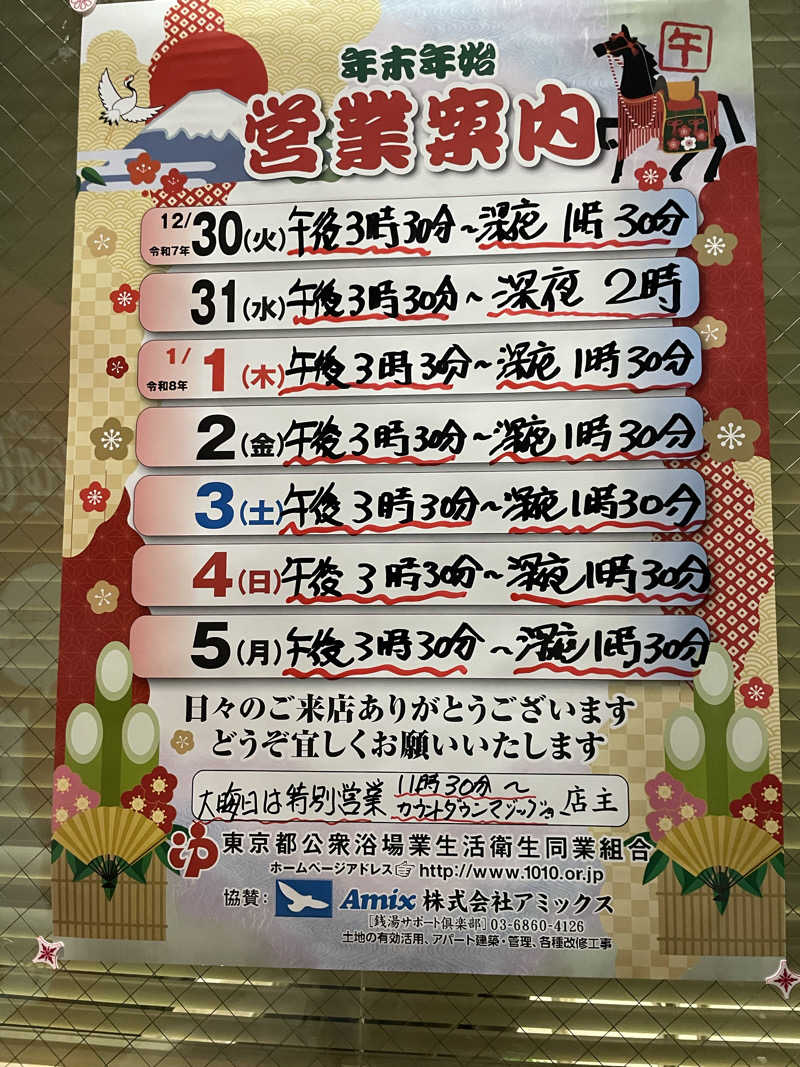 午
年末年始
営業案内
12/
令和7年
30(火)午後3時30分~深夜 1時30分
31(水)午後3時30分~深夜 2時
1/
令和8年
1(木)午後3時3分~深夜1時30分
2(金)午後3時30分~深夜1時30分
3(土)午後3時30分~深夜1時30分
4(日)午後3時30分~深夜1時30分
5(月)午後3時30分~深夜1時30分
日々のご来店ありがとうございます
どうぞ宜しくお願いいたします
大晦日は特別営業 11時30分~
カウントダウンマジック 店主
東京都公衆浴場業生活衛生同業組合
ホームページアドレス☞http://www.1010.or.jp
協賛: Amix 株式会社アミックス
[銭湯サポート倶楽部] 03-6860-4126
土地の有効活用、アパート建築・管理、各種改修工事